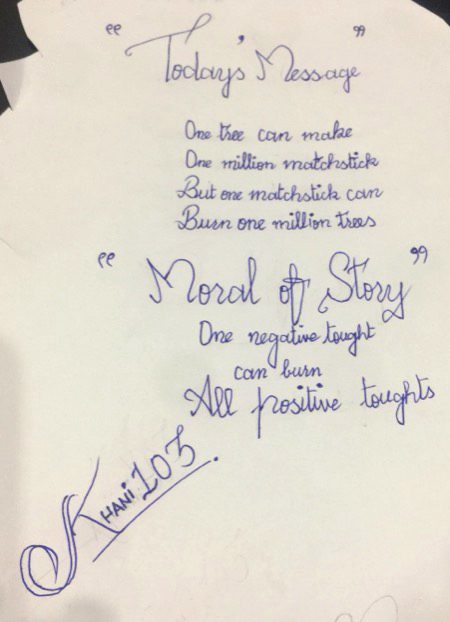 "Today's Message"
One tree can make
One million matchstick
But one matchstick can
Burn one million trees
"Moral of Story"
One negative tought
can burn
All positive toughts
Khani 103